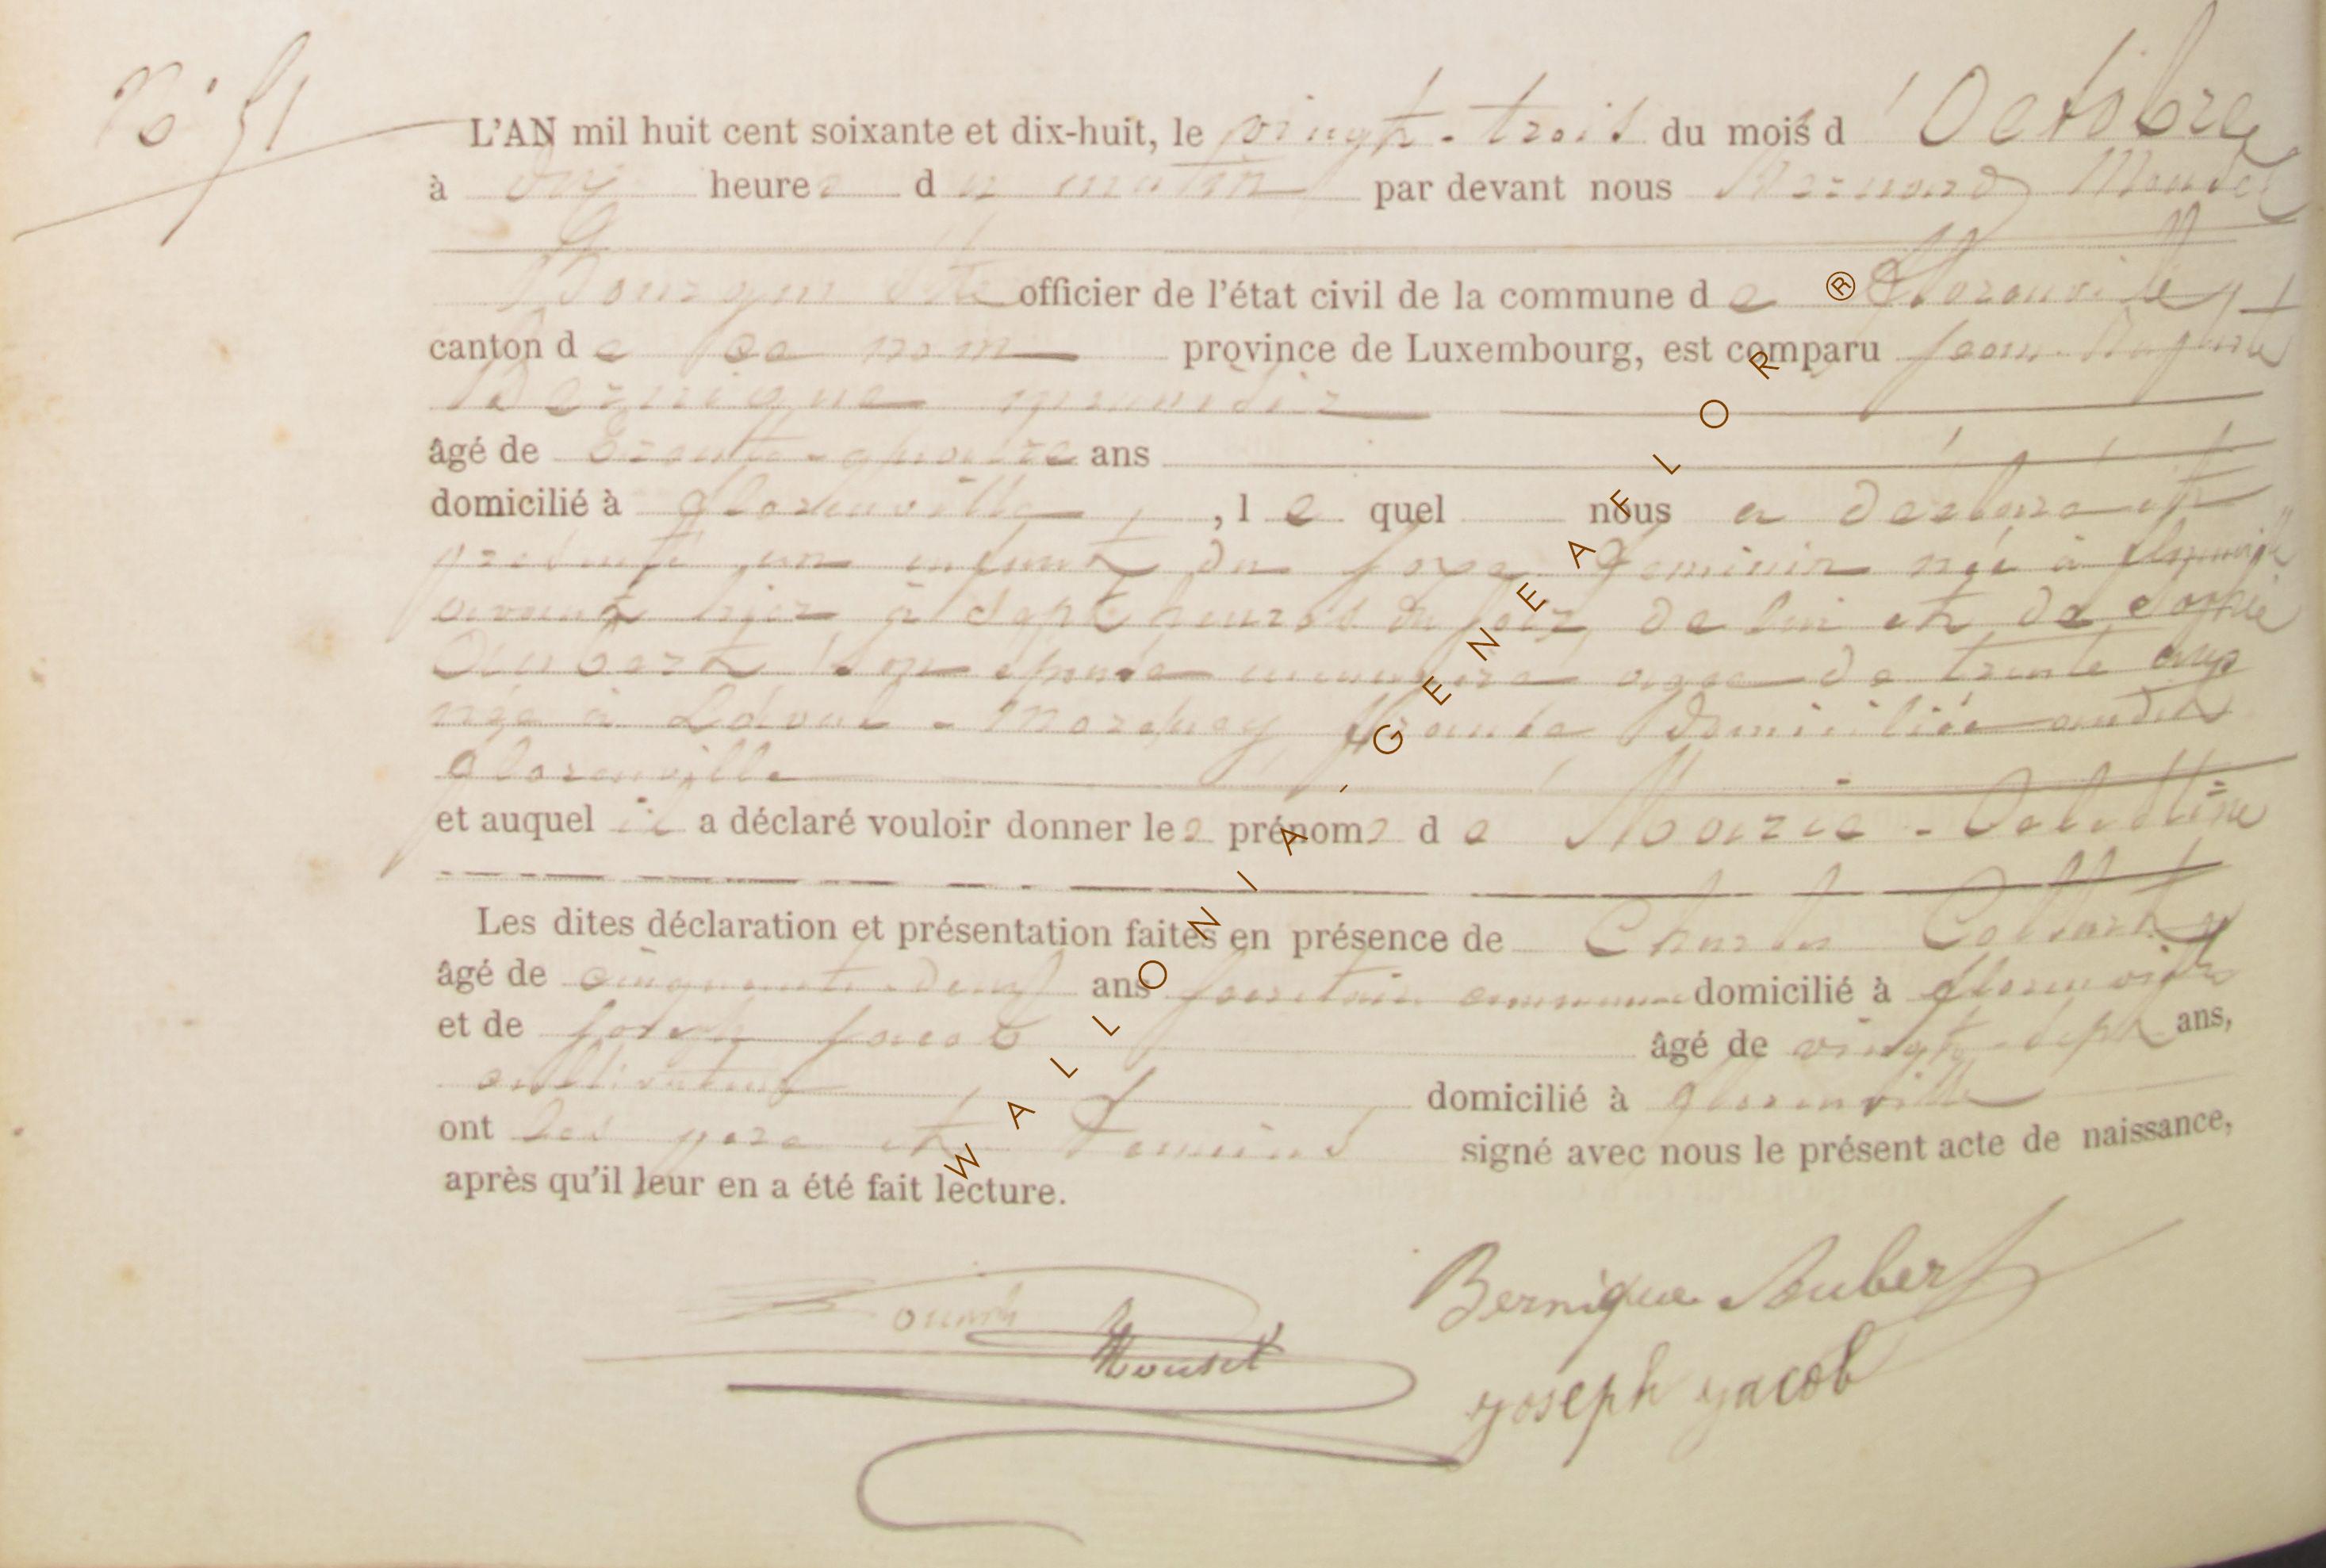 No 51
L'AN mil huit cent soixante et dix-huit, le vingt-trois du mois d'Octobre
à dix heures du matin par devant nous Bernard
Bourgmestre officier de l'état civil de la commune de Florenville
canton de ce nom province de Luxembourg, est comparu Jean-Baptiste
Bernique menuisier
âgé de trente-quatre ans
domicilié à florenville, lequel nous a déclaré et
présenté un enfant du sexe féminin née à florenville
avant hier à sept heures du soir, de lui et de Sophie
Aubert son épouse ménagère agée de trente ans
née à france domiciliée audit
florenville
et auquel il a déclaré vouloir donner les prénoms de Marie-Celestine
Les dites déclaration et présentation faites en présence de Charles Collard
âgé de cinquante-deux ans domicilié à florenville
et de Joseph Jacob âgé de vingt-sept ans,
cultivateur domicilié à florenville
ont les père et témoins signé avec nous le présent acte de naissance,
après qu'il leur en a été fait lecture.
Bernique Aubert
Joseph Jacob
WALLONIA-GENEAFLOR®